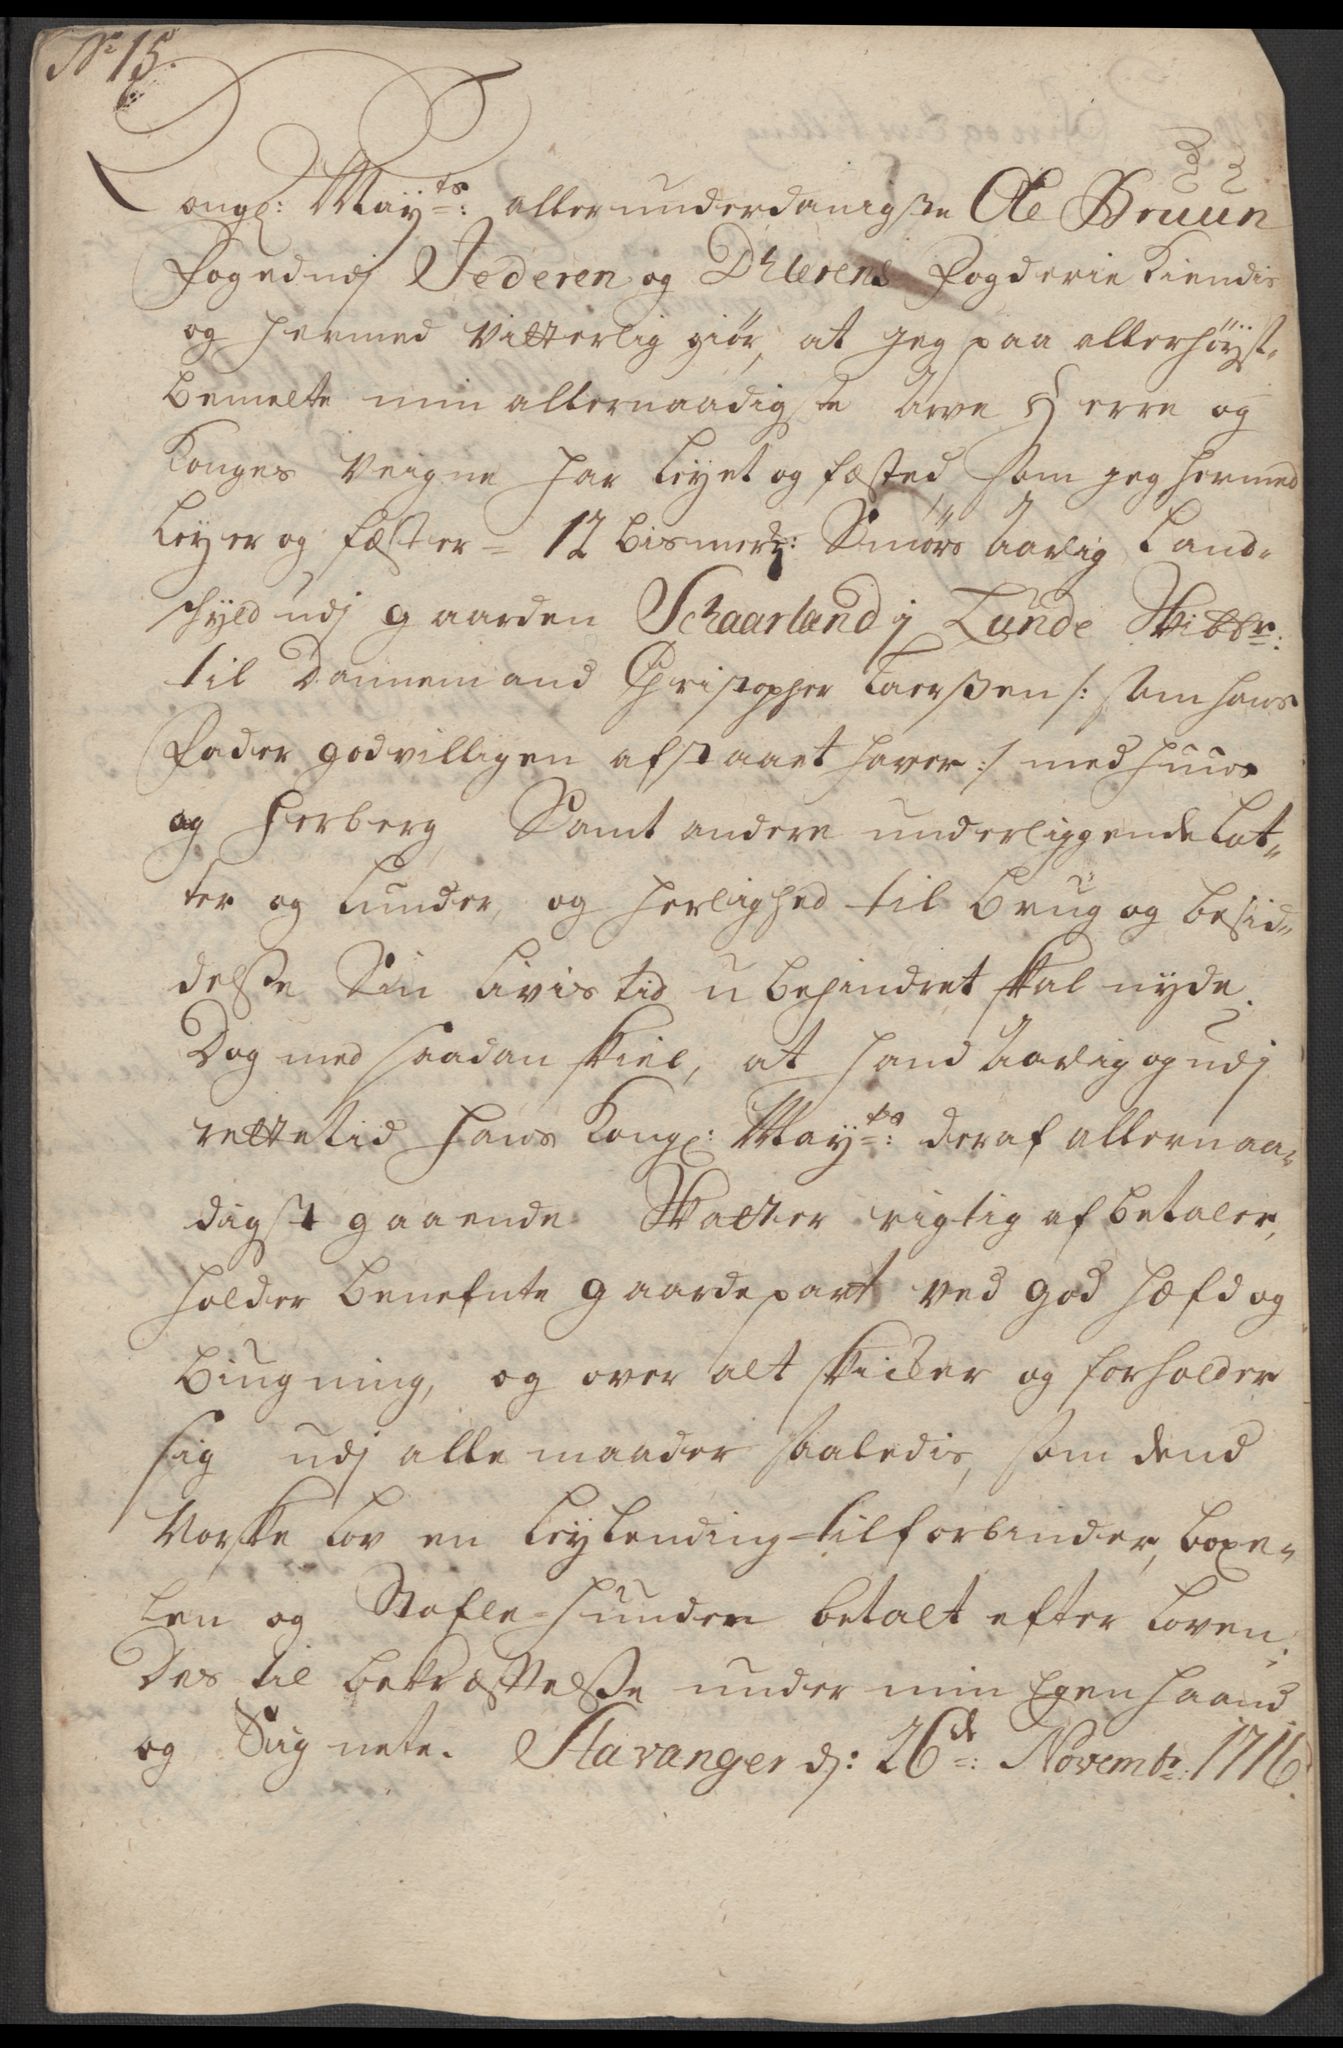 No 15.
Congl: Mayts: allerunderdanigste Ole Bruun
Foged udj Jederen og Dhlerens Fogderie Kiendis
og hermed vitterlig giør, at jeg paa allerhöyst-
bemelte min allernaadigste Arve Herre og
Konges Veigne har leyet og fæsted, som jeg hermed
leyer og fæster = 12 bismerp: Smørs Aarlig Land-
schyld udj gaarden Schaarland j Lunde Skibbr:
til Dannemand Christopher Laerssen /: som hans
Fader godvilligen afstaaet haver :/ med huus
og herberg Samt andere underliggende Lot-
ter og Lunder, og herlighed til brug og besid-
delse Sin Livis tid ubehindret skal nyde.
Dog med saadan skiel, at hand Aarlig og udj
rette tid hans Kongl: Mayts: deraf allernaa-
digst gaaende Skatter rigtig afbetaler,
holder benefnte gaardepart ved god hæfd og
biugning, og over alt skicker og forholder
sig udj alle maader saaledis, som dend
Norske Lov en Leylending tilforbinder, boxe-
len og Stofle-hunder betalt efter Loven.
Des til bekræfftelse under min Egen haand
og Sig nete. Stavanger dj: 26de: Novembr: 1716.